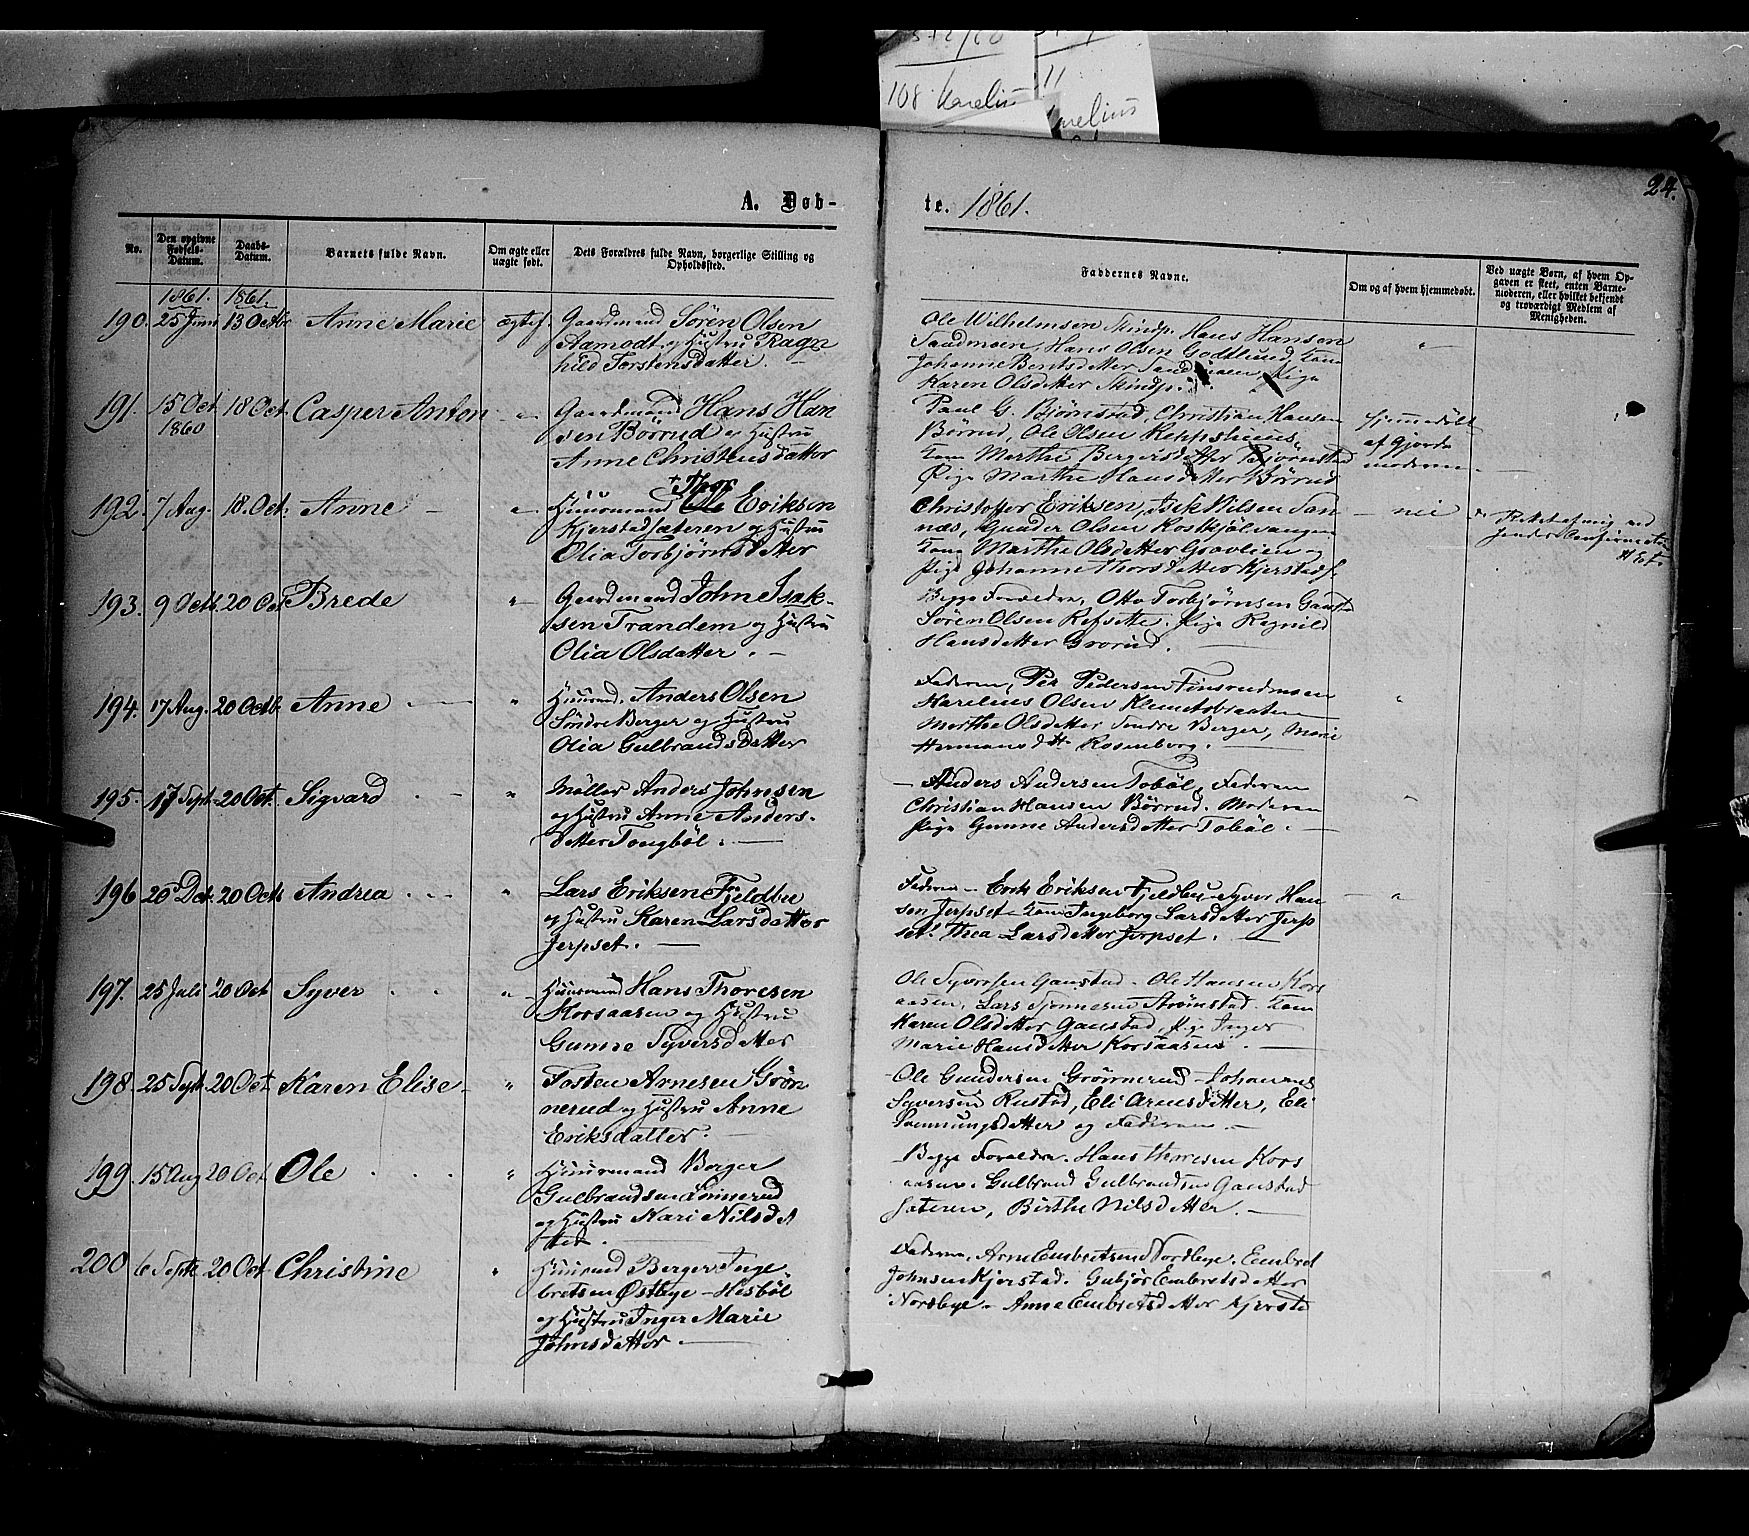 108 Karelius
11
A. Døb-
te. 1861.
24.
No.
Den opgivne Fødsels-Datum.
Daabs-Datum.
Barnets fulde Navn.
Om ægte eller uægte født.
Dets Forældres fulde Navn, borgerlige Stilling og Opholdssted.
Faddernes Navne.
Om og af hvem hjemmedøbt.
Ved uægte Børn, af hvem Opgaven er skeet, enten Barnemoderen, eller hvilket bekjendt og troværdigt Medlem af Menigheden.
1861. 1861.
190. 25 Juni 13 Octbr Anne Marie ægtef. Gaardmand Sören Olsen
Aamodt og Hustru Ragn
hild Torstensdatter.
Ole Wilhelmsen Hans Hansen
Sandmoen, Hans Olsen Godtlund, Kone
Johanne Berntsdatter Sandmoen, Pige
Karen Olsdatter
191. 15 Oct 1860 18 Oct. Casper Anton " Gaardmand Hans Han
sen Börrud og Hustru
Anne Christensdatter
Paul G. Björnstad, Christian Hansen
Börrud, Ole Olsen Reppshuus,
Kone Marthe Bergersdatter Björnstad
Pige Marthe Hansdatter Börrud
hjemmedöbt
af Gjorde
moderen
192. 7 Aug. 18. Oct. Anne " Huusmand Ole Eriksen
+ Thor
Kjerstadsæteren og Hustru
Olia Torbjörnsdatter
Christoffer Eriksen, Nilsen San
næs, Gunder Olsen
Kone Marthe Olsdatter Gravlien og
Pige Johanne Thorsdatter Kjerstads.
nei
Rettet af mig ved
193. 9 Octb. 20 Oct Brede " Gaardmand John Isak-
sen Trandem og Hustru
Olia Olsdatter.
Begge Forældre, Otto Torbjörnsen Ganstad
Sören Olsen Refsette. Pige Ragnild
Hansdatter Grorud.
194. 17 Aug. 20 Octb. Anne " Huusmd. Anders Olsen
Söndre Berger og Hustru
Olia Gulbrandsdatter
Faderen, Per Pedersen Finsrudmoen
Karelius Olsen Klemetsbraaten
Marthe Olsdatter Söndre Berger, Marie
Hermansdtr Rosenborg.
195. 17 Sept. 20 Oct. Sigvard " Möller Anders Johnsen
og Hustru Anne Anders-
datter Tongböl.
Anders Andersen Toböl, Faderen
Christian Hansen Börrud. Moderen
Pige Gunne Andersdatter Toböl.
196 20 Oct Andrea " Lars Eriksen Fjeldbu
og Hustru Karen Larsdatter
Jerpset.
Faderen - Erik Eriksen Fjeldbu - Syver Han
sen Jerpset - Kone Ingeborg Larsdatter Jerp
set. Thea Larsdatter Jerpset.
197. 25 Juli 20 Oct Syver " Huusmand Hans Thoresen
Korsaasen og Hustru
Gunne Syversdatter
Ole Syversen Ganstad - Ole Hansen Kors
aasen, Lars Strömstad - Kone
Karen Olsdatter Ganstad, Pige Inger
Marie Hansdatter Korsaasen.
198. 25 Sept. 20 Oct. Karen Elise " Tosten Arnesen Grön
nerud og Hustru Anne
Eriksdatter.
Ole Gundersen Grönnerud - Johannes
Syversen Rustad, Eli Arnesdatter, Eli
datter og Faderen.
199. 15 Aug 20 Oct. Ole " Huusmand Berger
Gulbrandsen Linnerud
og Hustru Kari Nilsdat
ter.
Begge Forældre. Hans Thoresen Kors
aasen. Gulbrand Gulbrandsen Ganstad
sæteren, Birthe Nilsdatter.
200 6 Septb 20 Oct Christine " Huusmd Berger Enge
bretsen Østbye - Hesböl
og Hustru Inger Marie
Johnsdatter
Faderen, Arne Embretsen Nordbye. Embret
Johnsen Kjerstad. Gubjör Embretsdatter
Nordbye - Anne Embretsdatter Kjersta